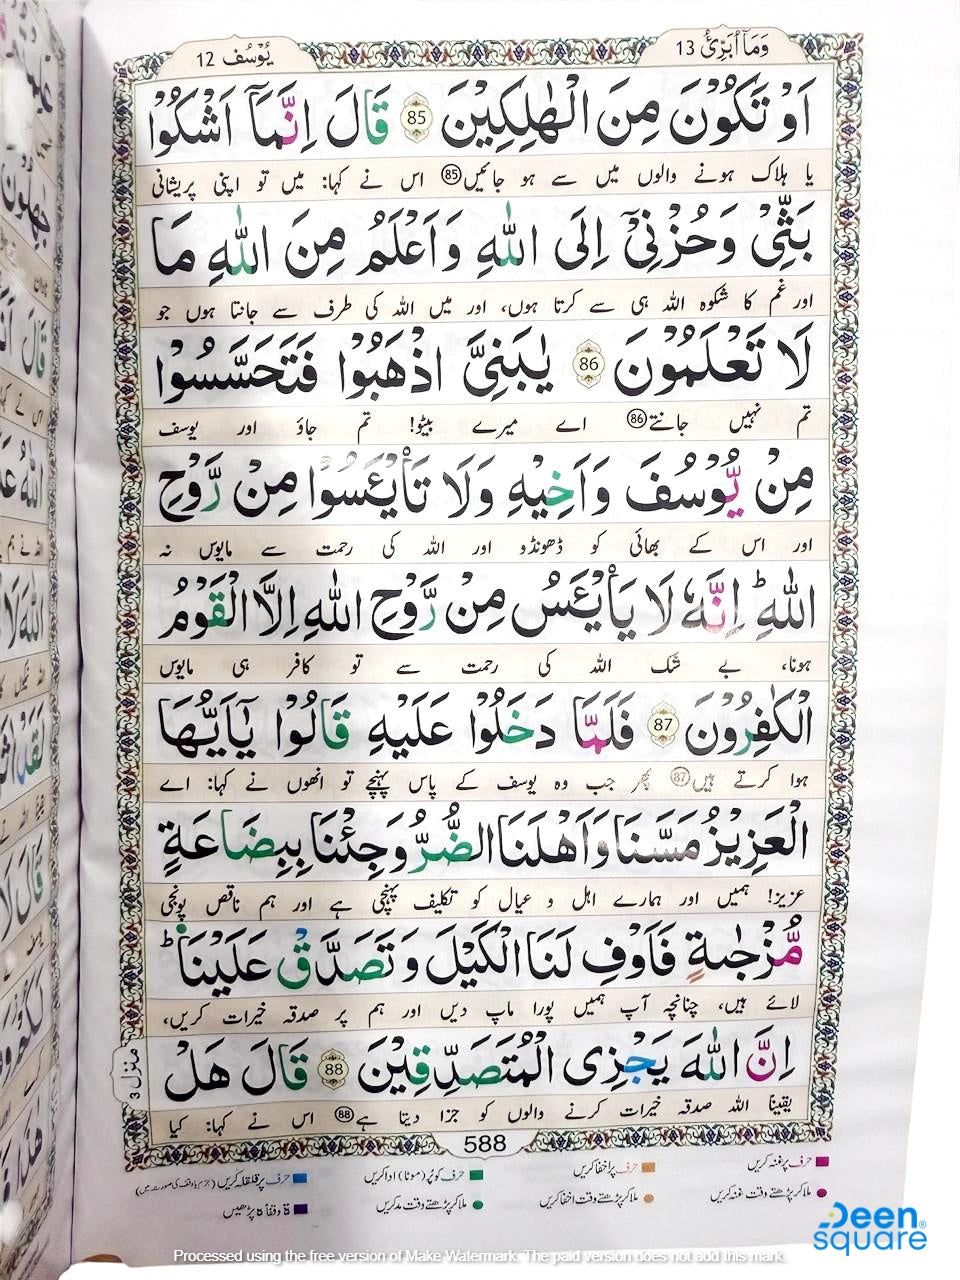 وَمَآ اُبَرِّئُ 13
يُوْسُف 12
اَوْ تَكُوْنَ مِنَ الْهٰلِكِيْنَ 85 قَالَ اِنَّمَآ اَشْكُوْا
یا ہلاک ہونے والوں میں سے ہو جائیں 85 اس نے کہا: میں تو اپنی پریشانی
بَثِّيْ وَحُزْنِيْٓ اِلَى اللّٰهِ وَاَعْلَمُ مِنَ اللّٰهِ مَا
اور غم کا شکوہ اللہ ہی سے کرتا ہوں، اور میں اللہ کی طرف سے جانتا ہوں جو
لَا تَعْلَمُوْنَ 86 يٰبَنِيَّ اذْهَبُوْا فَتَحَسَّسُوْا
تم نہیں جانتے 86 اے میرے بیٹو! تم جاؤ اور یوسف
مِنْ يُّوْسُفَ وَاَخِيْهِ وَلَا تَايْـَٔسُوْا مِنْ رَّوْحِ
اور اس کے بھائی کو ڈھونڈو اور اللہ کی رحمت سے مایوس نہ
اللّٰهِ ؕ اِنَّهٗ لَا يَايْـَٔسُ مِنْ رَّوْحِ اللّٰهِ اِلَّا الْقَوْمُ
ہونا، بے شک اللہ کی رحمت سے تو کافر ہی مایوس
الْكٰفِرُوْنَ 87 فَلَمَّا دَخَلُوْا عَلَيْهِ قَالُوْا يٰٓاَيُّهَا
ہوا کرتے ہیں 87 پھر جب وہ یوسف کے پاس پہنچے تو انھوں نے کہا: اے
الْعَزِيْزُ مَسَّنَا وَاَهْلَنَا الضُّرُّ وَجِئْنَا بِبِضَاعَةٍ
عزیز! ہمیں اور ہمارے اہل و عیال کو تکلیف پہنچی ہے اور ہم ناقص پونجی
مُّزْجٰىةٍ فَاَوْفِ لَنَا الْكَيْلَ وَتَصَدَّقْ عَلَيْنَا ؕ
لائے ہیں، چنانچہ آپ ہمیں پورا ماپ دیں اور ہم پر صدقہ خیرات کریں،
اِنَّ اللّٰهَ يَجْزِي الْمُتَصَدِّقِيْنَ 88 قَالَ هَلْ
یقیناً اللہ صدقہ خیرات کرنے والوں کو جزا دیتا ہے 88 اس نے کہا: کیا
منزل 3
588
حرف پر غنہ کریں
حرف پر اخفا کریں
حرف کو پُر (موٹا) ادا کریں
حرف پر قلقلہ کریں (جزم یا وقف کی صورت میں)
ملا کر پڑھتے وقت غنہ کریں
ملا کر پڑھتے وقت اخفا کریں
ملا کر پڑھتے وقت مد کریں
ۃ وقفاً ہ پڑھیں
Deen square®
Processed using the free version of Make Watermark. The paid version does not add this mark.